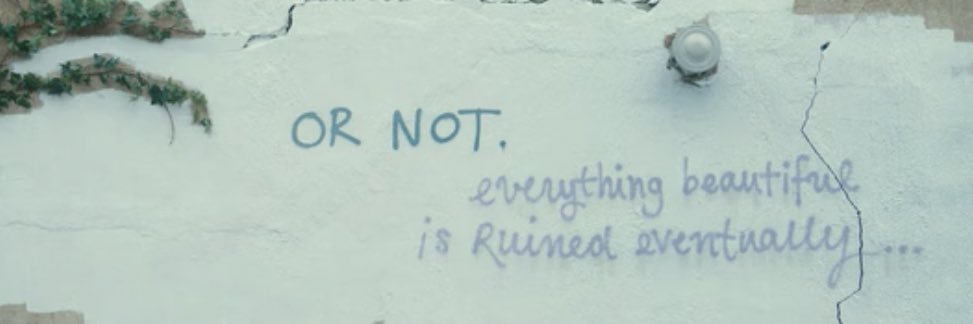 OR NOT.
everything beautiful
is Ruined eventually...